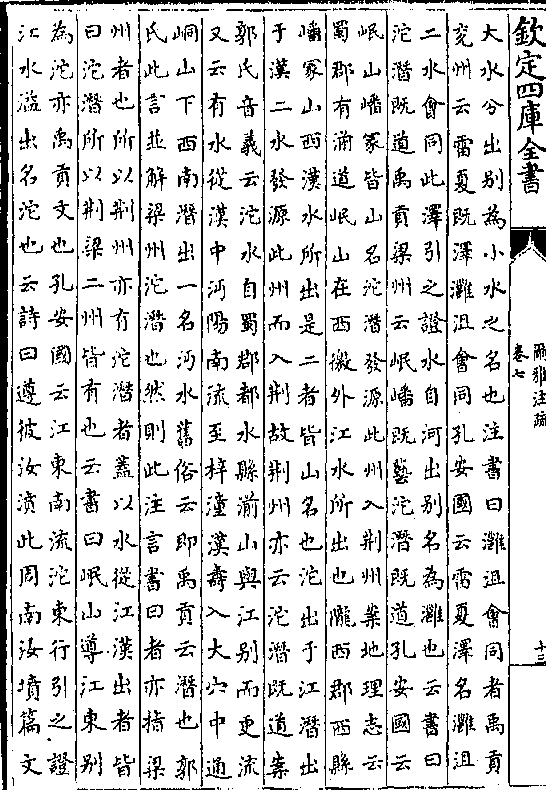 欽定四庫全書
爾雅注疏
卷七
十三
大水分出别為小水之名也注書曰灉沮會同者禹貢
兖州云雷夏既澤灉沮會同孔安國云雷夏澤名灉沮
二水會同此澤引之證水自河出别名為灉也云書曰
沱潛既道禹貢梁州云岷嶓既藝沱潛既道孔安國云
岷山嶓冢皆山名沱潛發源此州入荆州案地理志云
蜀郡有湔道岷山在西徼外江水所出也隴西郡西縣
嶓冢山西漢水所出是二者皆山名也沱出于江潛出
于漢二水發源此州而入荆故荆州亦云沱潛既道案
郭氏音義云沱水自蜀郡都水縣湔山與江别而更流
又云有水從漢中沔陽南流至梓潼漢壽入大穴中通
峒山下西南潛出一名沔水舊俗云即禹貢云潛也郭
氏此言並解梁州沱潛也然則此注言書曰者亦指梁
州者也所以荆州亦有沱潛者蓋以水從江漢出者皆
曰沱潛所以荆梁二州皆有也云書曰岷山導江東别
為沱亦禹貢文也孔安國云江東南流沱東行引之證
江水溢出名沱也云詩曰遵彼汝濆此周南汝墳篇文